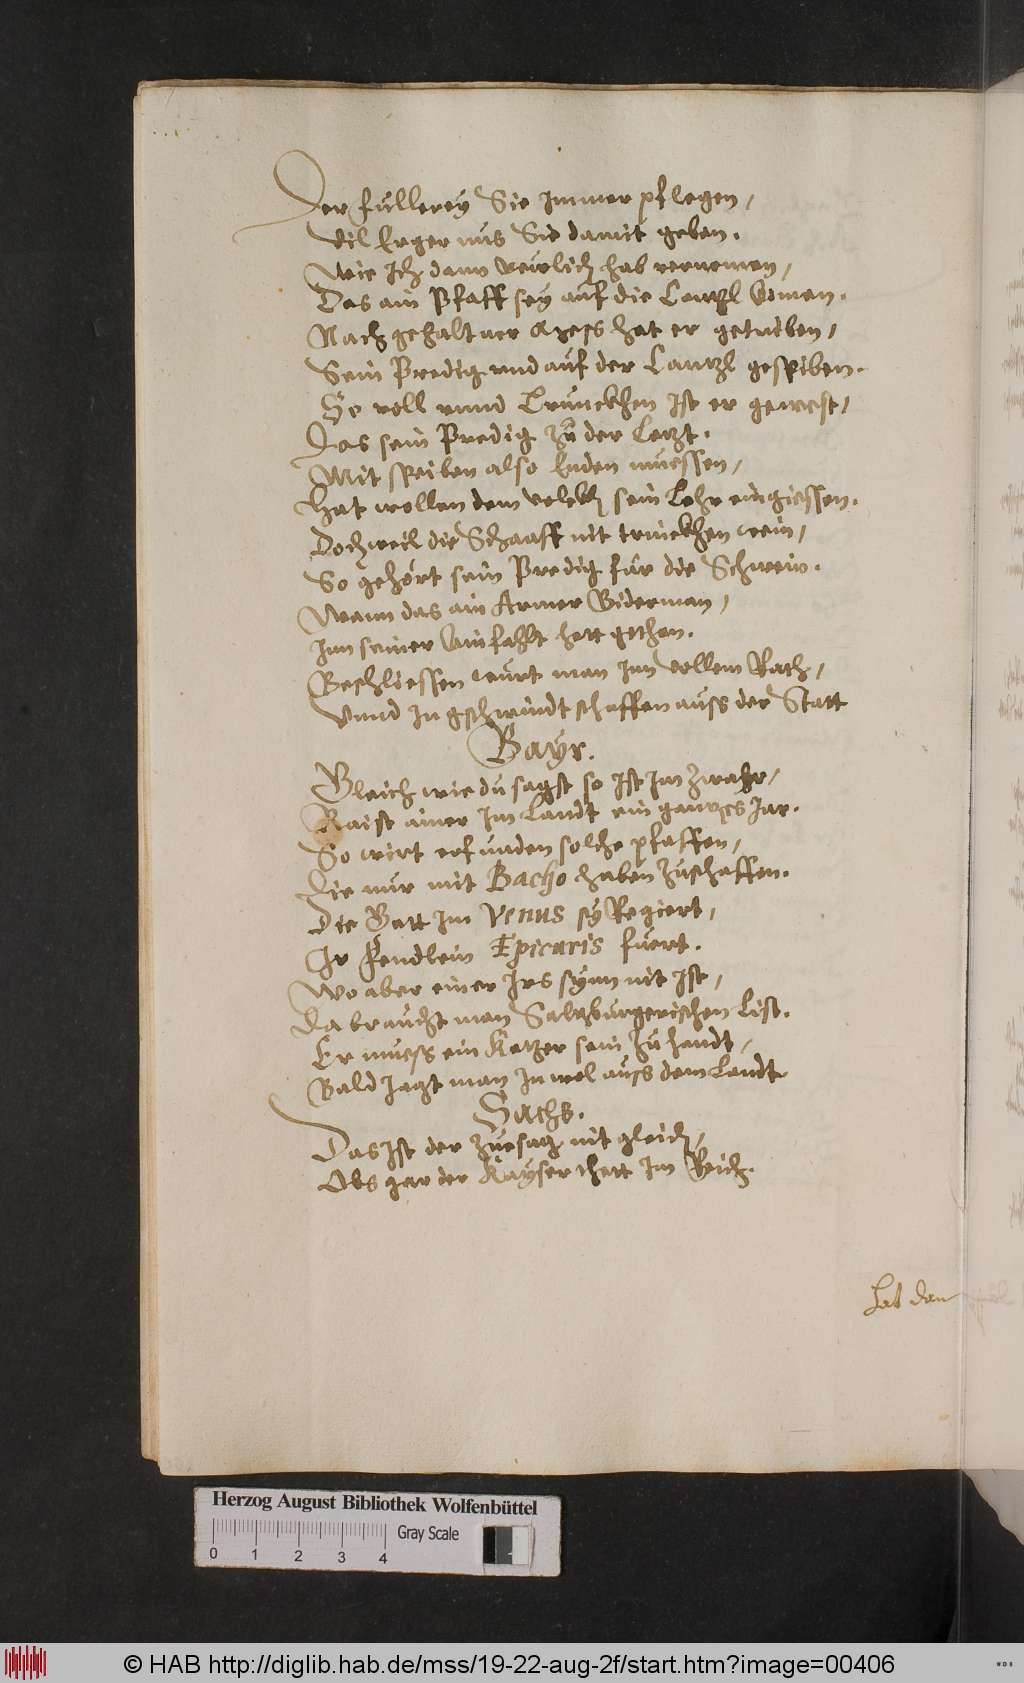 Der fullerey Sie Immer pflegen,
Vil Ergernus Sie damit geben.
Wie Ich dann neulich hab vernomen,
Das ain Pfaff sey auf die Cantzl komen.
Nach gehaltner Mess hat er getriben,
Sein Predig und auf der Cantzl gespiben.
So voll unnd Trunckhen Ist er gewest,
Das sein Predig zu der Letzt.
Mit speiben also Enden muessen,
Hat wollen dem volckh sein Lehr eingiessen.
Doch weil die Schaaff nit trinckhen wein,
So gehört sein Predig für die Schwein.
Wann das ain Armer Biderman,
Inn seiner Ainfahlt hett gethan.
Beschliessen wurt man Inn vollem Rath,
Unnd In gschwindt schaffen auss der Statt
Bayr.
Gleich wie du sagst so Ist Im zwahr,
Raist ainer Im Landt ein gantzes Jar.
So wirt erfunden solche pfaffen,
Die nur mit Bacho haben zuschaffen.
Die Gett Im Venus sy Regiert,
Ir Fendlein Epicuris fuert.
Wo aber einer Irs synn nit Ist,
Da braucht man Saltzburgerischen List.
Er muess ein Ketzer sein zu handt,
Bald Jagt man In wol auss dem Landt
Sachs.
Das Ist der zuesag nit gleich,
Obs gar der Kayser thett Im Reich.
Lat dan
Herzog August Bibliothek Wolfenbüttel
0 1 2 3 4 Gray Scale
© HAB http://diglib.hab.de/mss/19-22-aug-2f/start.htm?image=00406